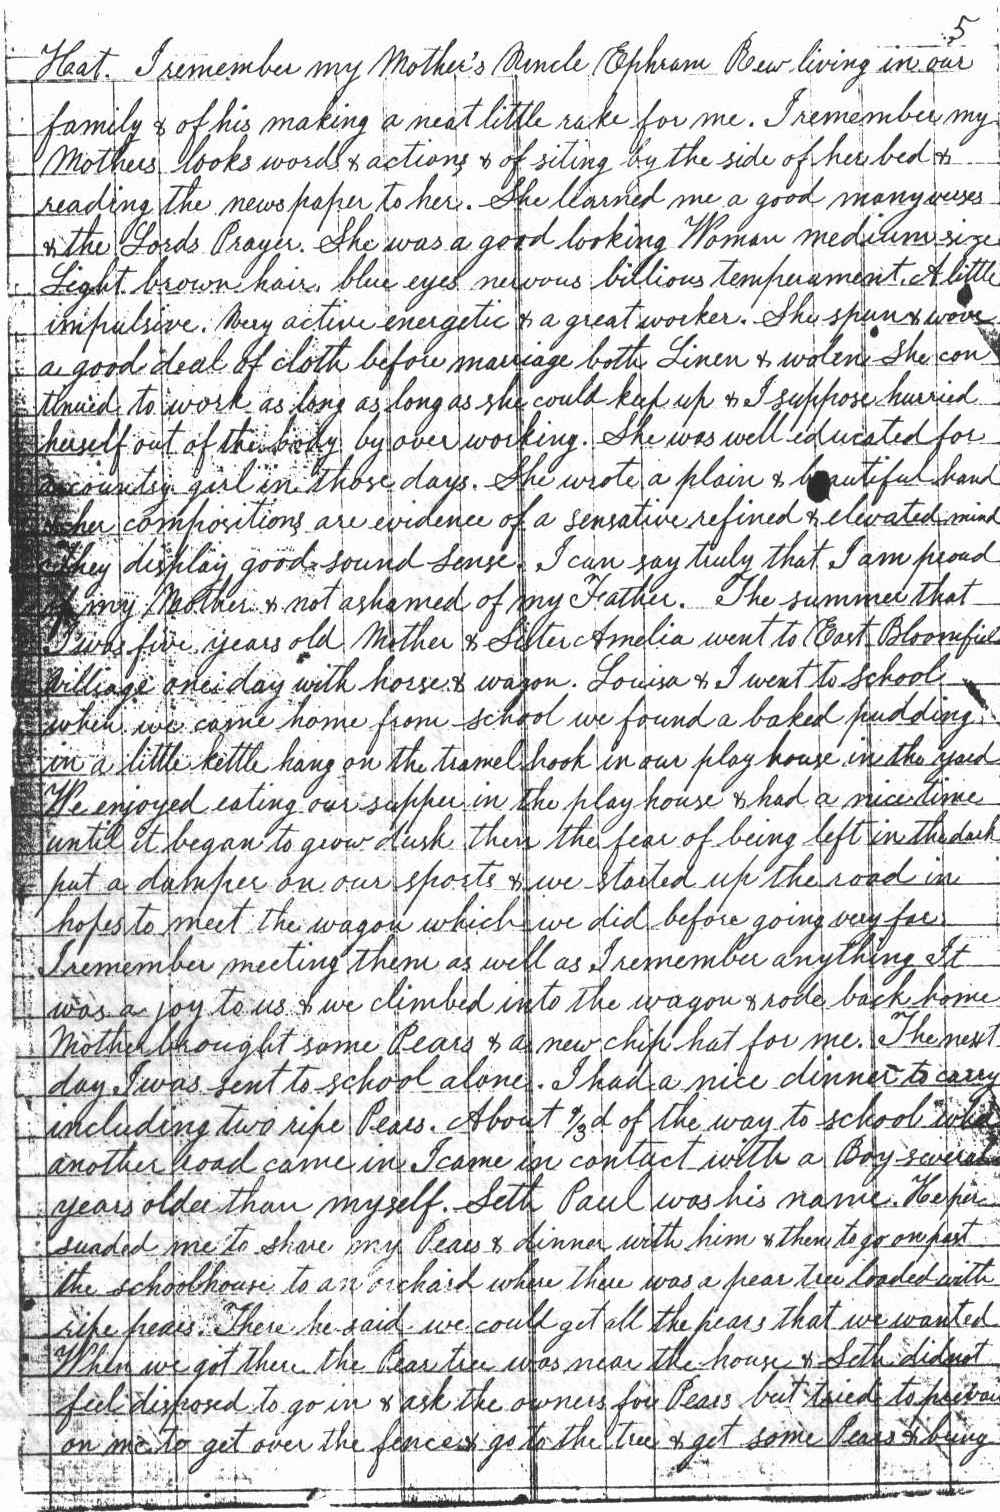 5
Hat. I remember my Mother's Uncle Ephram Rew living in our
family & of his making a neat little rake for me. I remember my
Mothers looks words & actions & of siting by the side of her bed &
reading the newspaper to her. She learned me a good many verses
& the Lords Prayer. She was a good looking Woman medium size
Light brown hair, blue eyes nervous billious temperament. A little
impulsive. Very active energetic & a great worker. She spun & wove
a good deal of cloth before marriage both Linen & wolen She con
tinued to work as long as long as she could keep up & I suppose hurried
herself out of the body by over working. She was well educated for
a country girl in those days. She wrote a plain & beautiful hand
& her compositions are evidence of a sensative refined & elevated mind
They display good sound sense. I can say truly that I am proud
of my Mother & not ashamed of my Father. The summer that
I was five years old Mother & Sister Amelia went to East Bloomfield
Villiage one day with horse & wagon. Louisa & I went to school
when we came home from school we found a baked pudding
in a little kettle hang on the tramel hook in our play house in the yard
We enjoyed eating our supper in the play house & had a nice time
until it began to grow dusk then the fear of being left in the dark
put a damper on our sports & we started up the road in
hopes to meet the wagon which we did before going very far.
I remember meeting them as well as I remember anything It
was a joy to us & we climbed into the wagon & rode back home
Mother brought some Pears & a new chip hat for me. The next
day I was sent to school alone. I had a nice dinner to carry
including two ripe Pears. About 2/3d of the way to school
another road came in I came in contact with a Boy several
years older than myself. Seth Paul was his name. He per
suaded me to share my Pears & dinner with him & then to go on past
the schoolhouse to an orchard where there was a pear tree loaded with
ripe pears. There he said we could get all the pears that we wanted
When we got there the Pear tree was near the house & Seth did not
feel disposed to go in & ask the owners for Pears but tried to prevail
on me to get over the fence & go to the tree & get some Pears & being